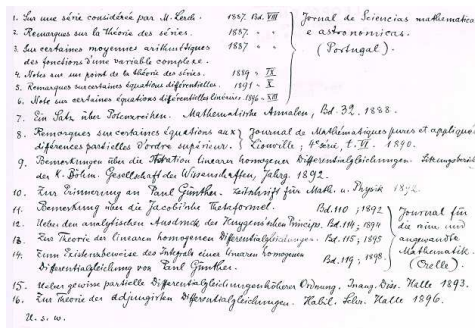 1. Sur une série considérée par M. Lerch. 1887. Bd. VIII
2. Remarques sur la théorie des séries. 1887 " "
3. Sur certaines moyennes arithmétiques 1887 " "
des fonctions d'une variable complexe.
4. Notes sur un point de la théorie des séries. 1889 " IX
5. Remarques sur certaines équations différentielles. 1891 " X
6. Note sur certaines équations différentielles linéaires. 1896 " XIII
Jornal de Sciencias mathematicas
e astronomicas.
(Portugal).
7. Ein Satz über Potenzreihen. Mathematische Annalen, Bd. 32. 1888.
8. Remarques sur certaines équations aux Journal de Mathématiques pures et appliqué
différences partielles d'ordre supérieur. Liouville; 4e série, t. VI. 1890.
9. Bemerkungen über die linearer homogener Differentialgleichungen. Sitzungsberich
der K. Böhm. Gesellschaft der Wissenschaften, Jahrg. 1892.
10. Zur Erinnerung an Paul Günther. Zeitschrift für Math. u. Physik 1892
11. Bemerkung über die Jacobi'sche Thetaformel. Bd. 110; 1892
12. Ueber den analytischen Ausdruck des Huygens'schen Princips. Bd. 114; 1894
13. Zur Theorie der linearen homogenen Differentialgleichungen. Bd. 115; 1895
14. Zum Existenzbeweise des Integrals einer linearen homogenen Bd. 119; 1898.
Differentialgleichung von Paul Günther.
Journal für
die reine und
angewandte
Mathematik.
(Crelle).
15. Ueber gewisse partielle Differentialgleichungen höherer Ordnung. Inaug. Diss. Halle 1893.
16. Zur Theorie der adjungirten Differentialgleichungen. Habil. Schr. Halle 1896.
U. s. w.